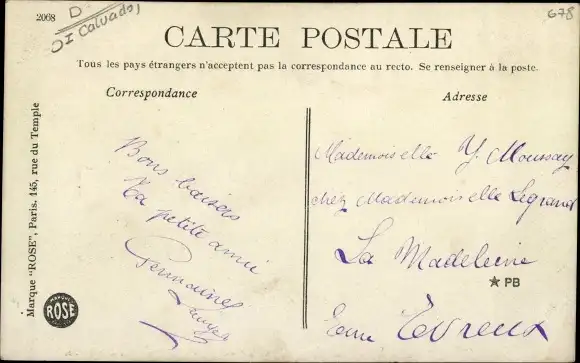 2008
D
I Calvados
678
CARTE POSTALE
Tous les pays étrangers n'acceptent pas la correspondance au recto. Se renseigner à la poste.
Correspondance
Adresse
Marque "ROSE", Paris. 145, rue du Temple
ROSE
Bons baisers
Ta petite amie
Germaine
Mademoiselle Y. Moussay
chez Mademoiselle Legrand
La Madeleine
PB
Eure Evreux